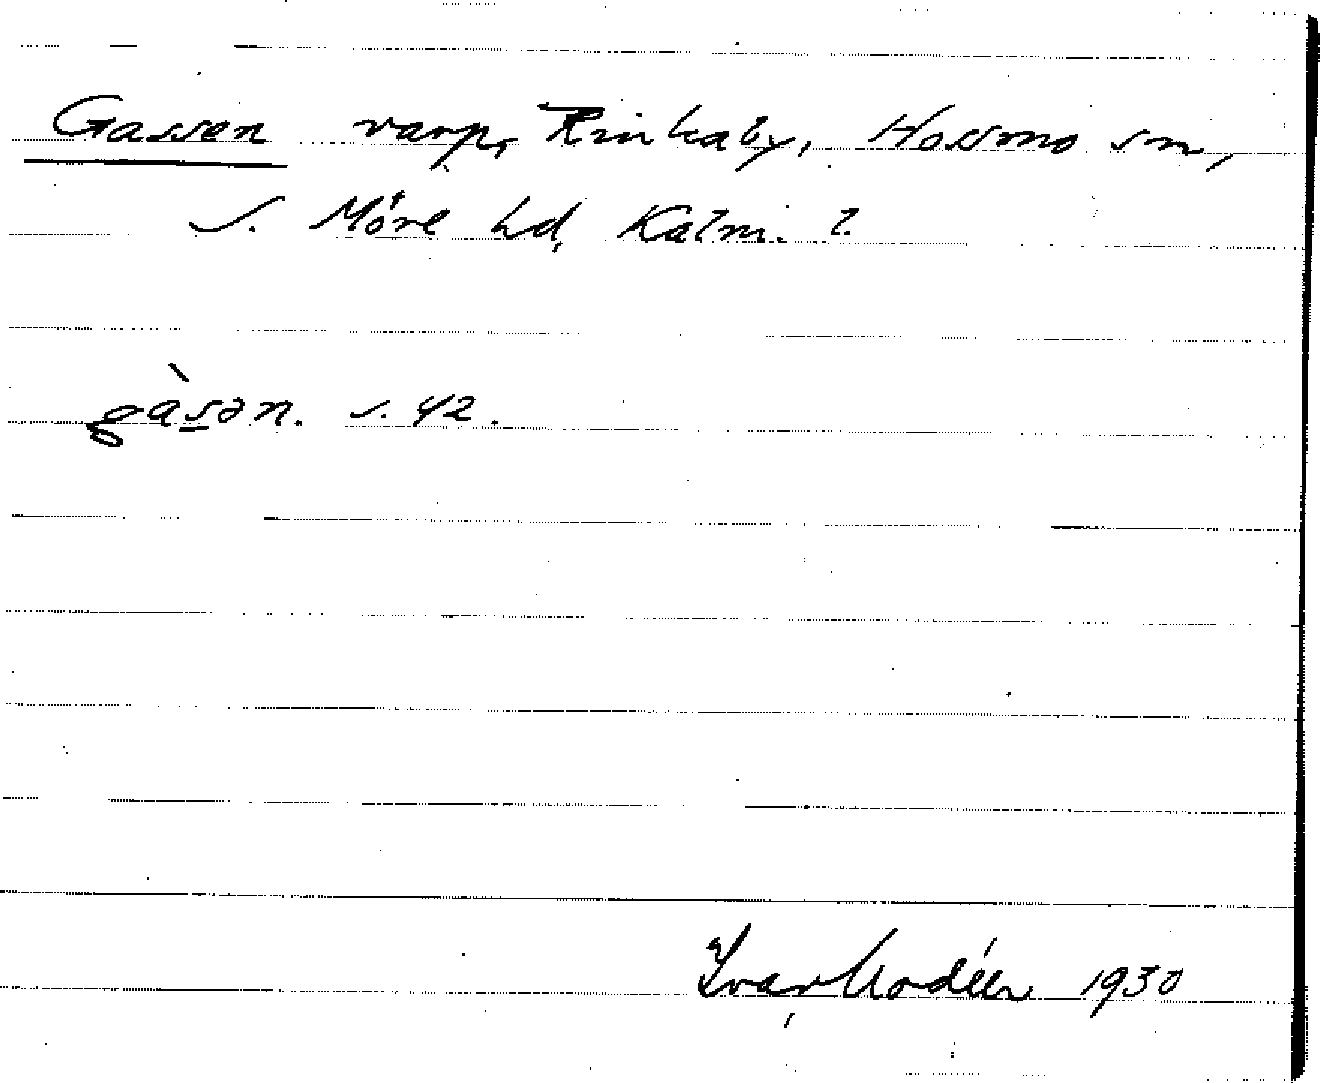 Gassen varp, Rinkaby, Hossmo sn,
S. Möre hd, Kalm. l.
gàsən. s. 42.
Ivar Modéer 1930